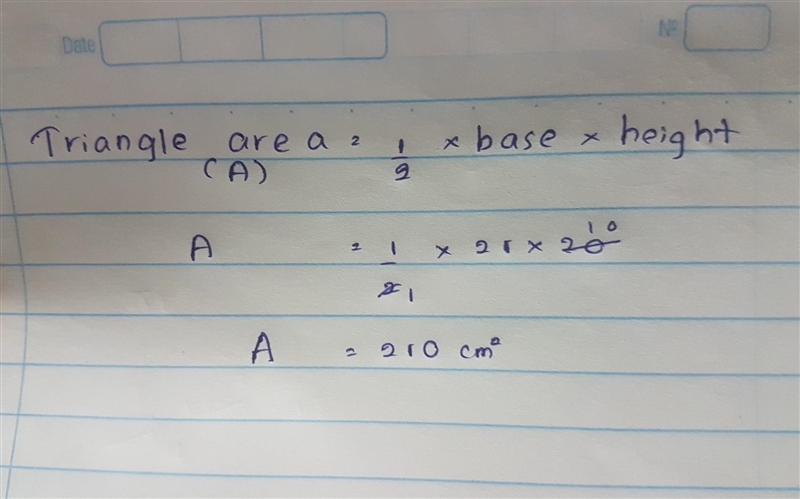 Date
No
Triangle area = 1/2 × base × height
(A)
A = 1/2 × 21 × 20 10
1
A = 210 cm²